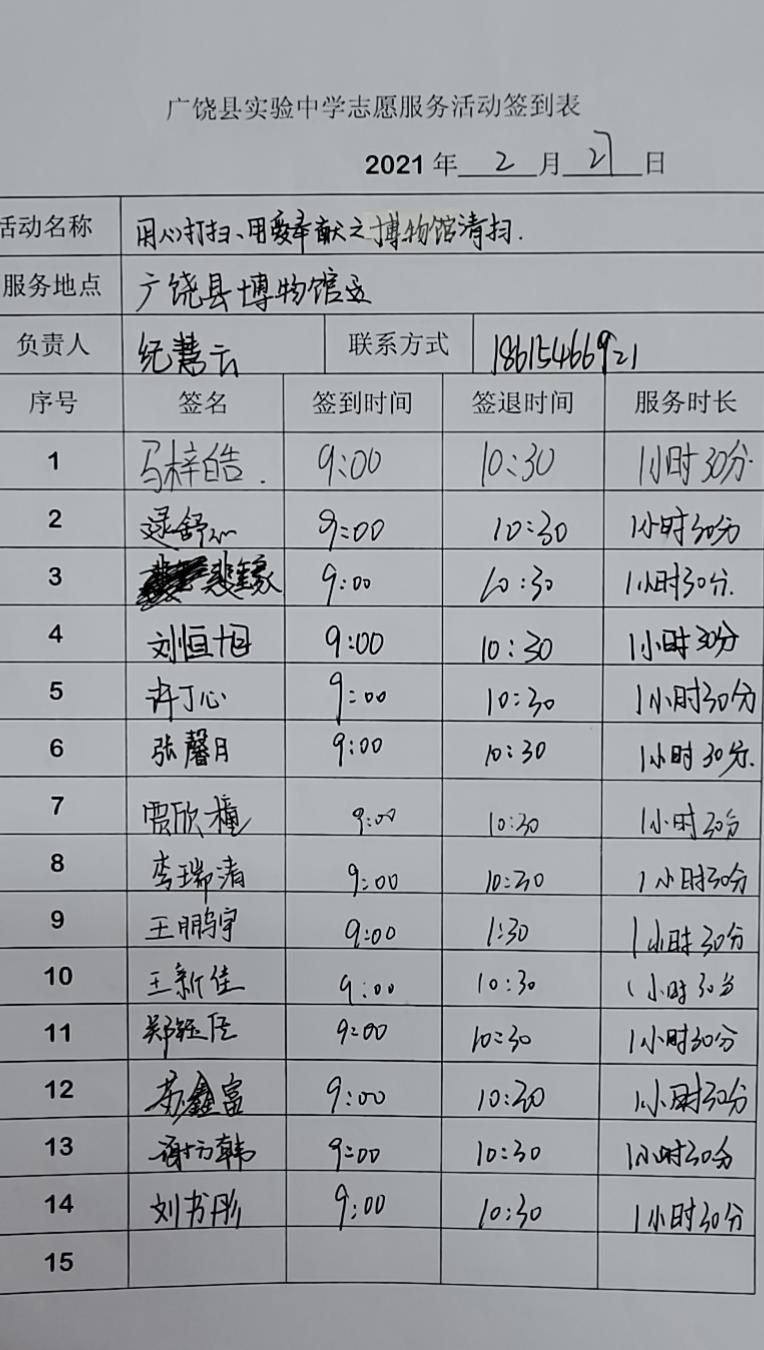 广饶县实验中学志愿服务活动签到表
2021 年 2 月 27 日
活动名称 用心打扫、用爱奉献之博物馆清扫.
服务地点 广饶县博物馆
负责人 纪慧云 联系方式 18615466921
序号 签名 签到时间 签退时间 服务时长
1 马梓皓. 9:00 10:30 1小时30分.
2 逯舒心 9:00 10:30 1小时30分
3 9:00 10:30 1小时30分.
4 刘恒旭 9:00 10:30 1小时30分
5 许丁心 9:00 10:30 1小时30分
6 张馨月 9:00 10:30 1小时30分.
7 贾欣橦 9:00 10:30 1小时30分
8 李瑞清 9:00 10:30 1小时30分
9 王鹏宇 9:00 1:30 1小时30分
10 王新佳 9:00 10:30 1小时30分
11 9:00 10:30 1小时30分
12 鑫富 9:00 10:30 1小时30分
13 谢方韩 9:00 10:30 1小时30分
14 刘书彤 9:00 10:30 1小时30分
15